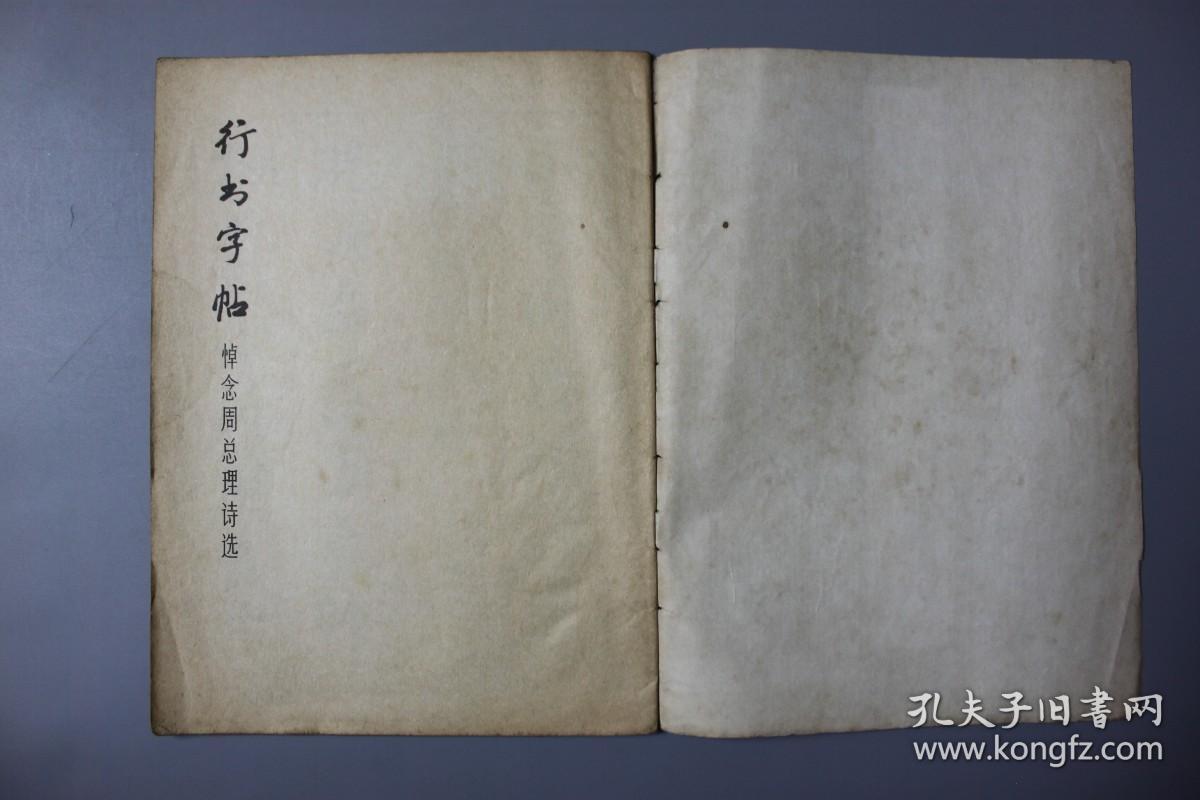 行书字帖
悼念周总理诗选
孔夫子旧書网
www.kongfz.com